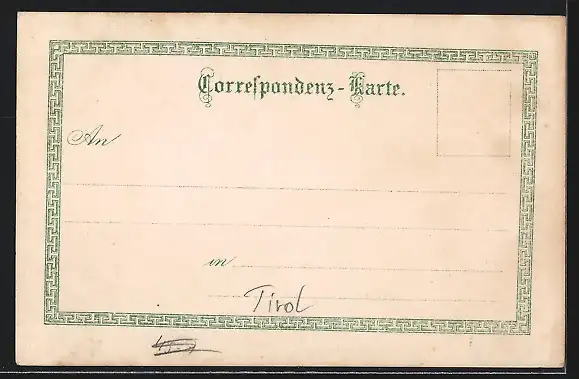 Correſpondenz-Karte.
An
in
Tirol